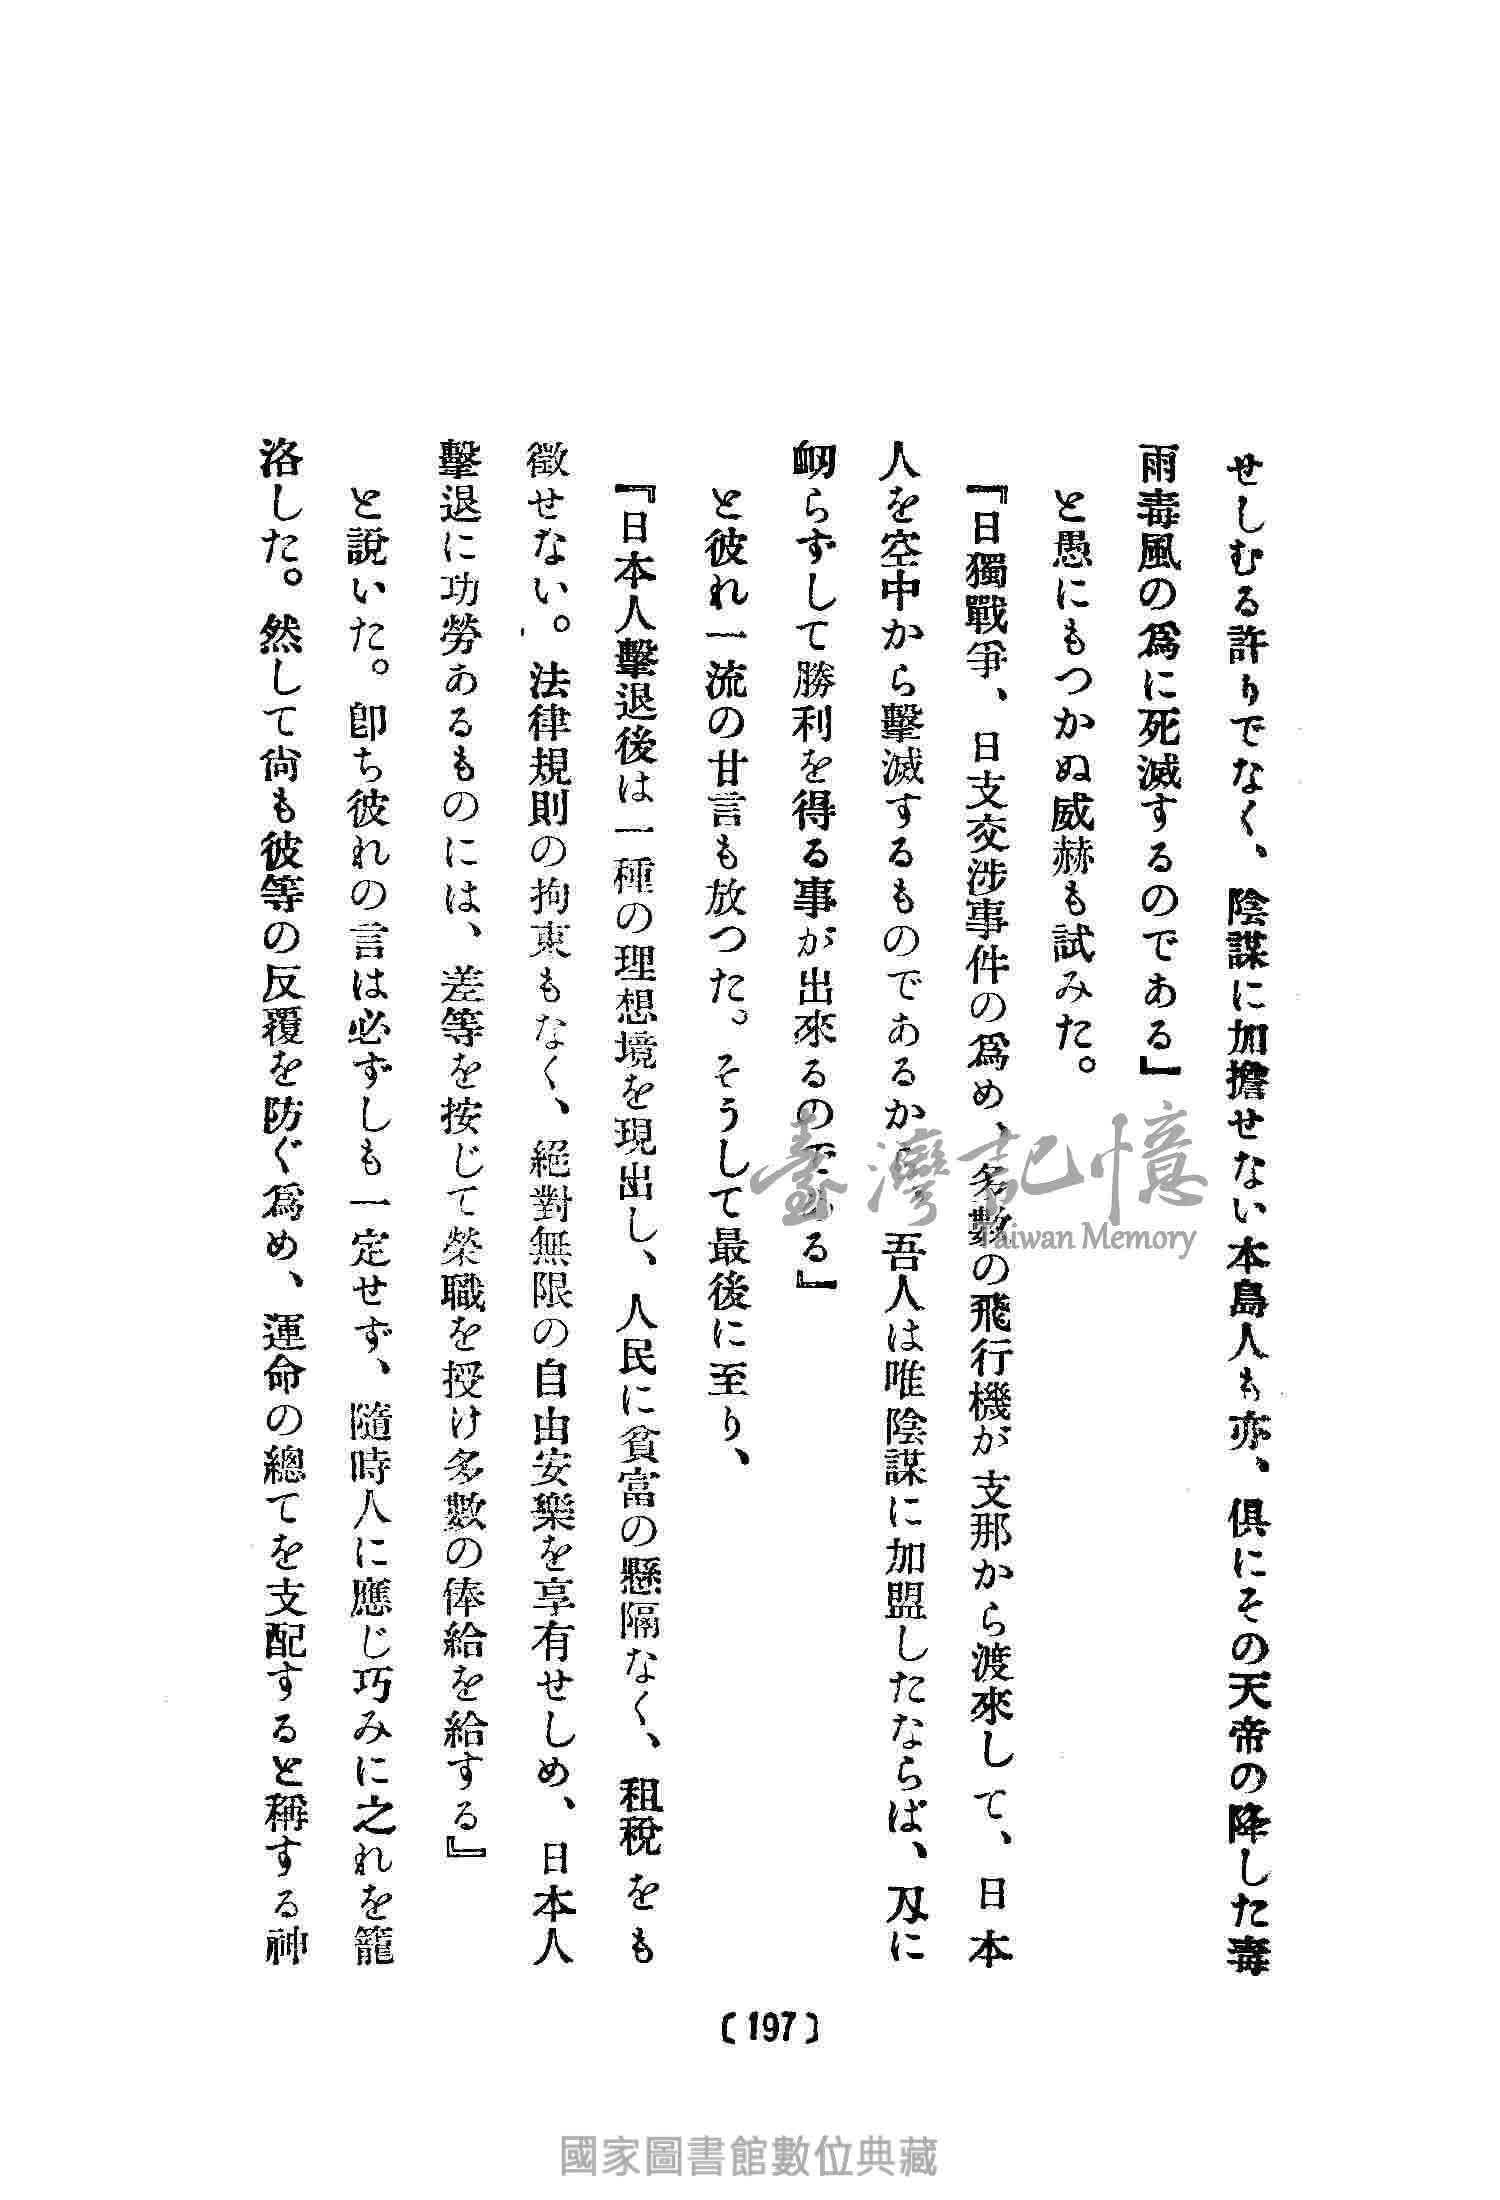 せしむる許りでなく、陰謀に加擔せない本島人も亦、俱にその天帝の降した毒
雨毒風の爲に死滅するのである』
と愚にもつかぬ威赫も試みた。
『日獨戰爭、日支交涉事件の爲め、多數の飛行機が支那から渡來して、日本
人を空中から擊滅するものであるから、吾人は唯陰謀に加盟したならば、刀に
衂らずして勝利を得る事が出來るのである』
と彼れ一流の甘言も放つた。そうして最後に至り、
『日本人擊退後は一種の理想境を現出し、人民に貧富の懸隔なく、租稅をも
徵せない。法律規則の拘束もなく、絕對無限の自由安樂を享有せしめ、日本人
擊退に功勞あるものには、差等を按じて榮職を授け多數の俸給を給する』
と說いた。卽ち彼れの言は必ずしも一定せず、隨時人に應じ巧みに之れを籠
洛した。然して尙も彼等の反覆を防ぐ爲め、運命の總てを支配すると稱する神
(197)
臺灣記憶
Taiwan Memory
國家圖書館數位典藏